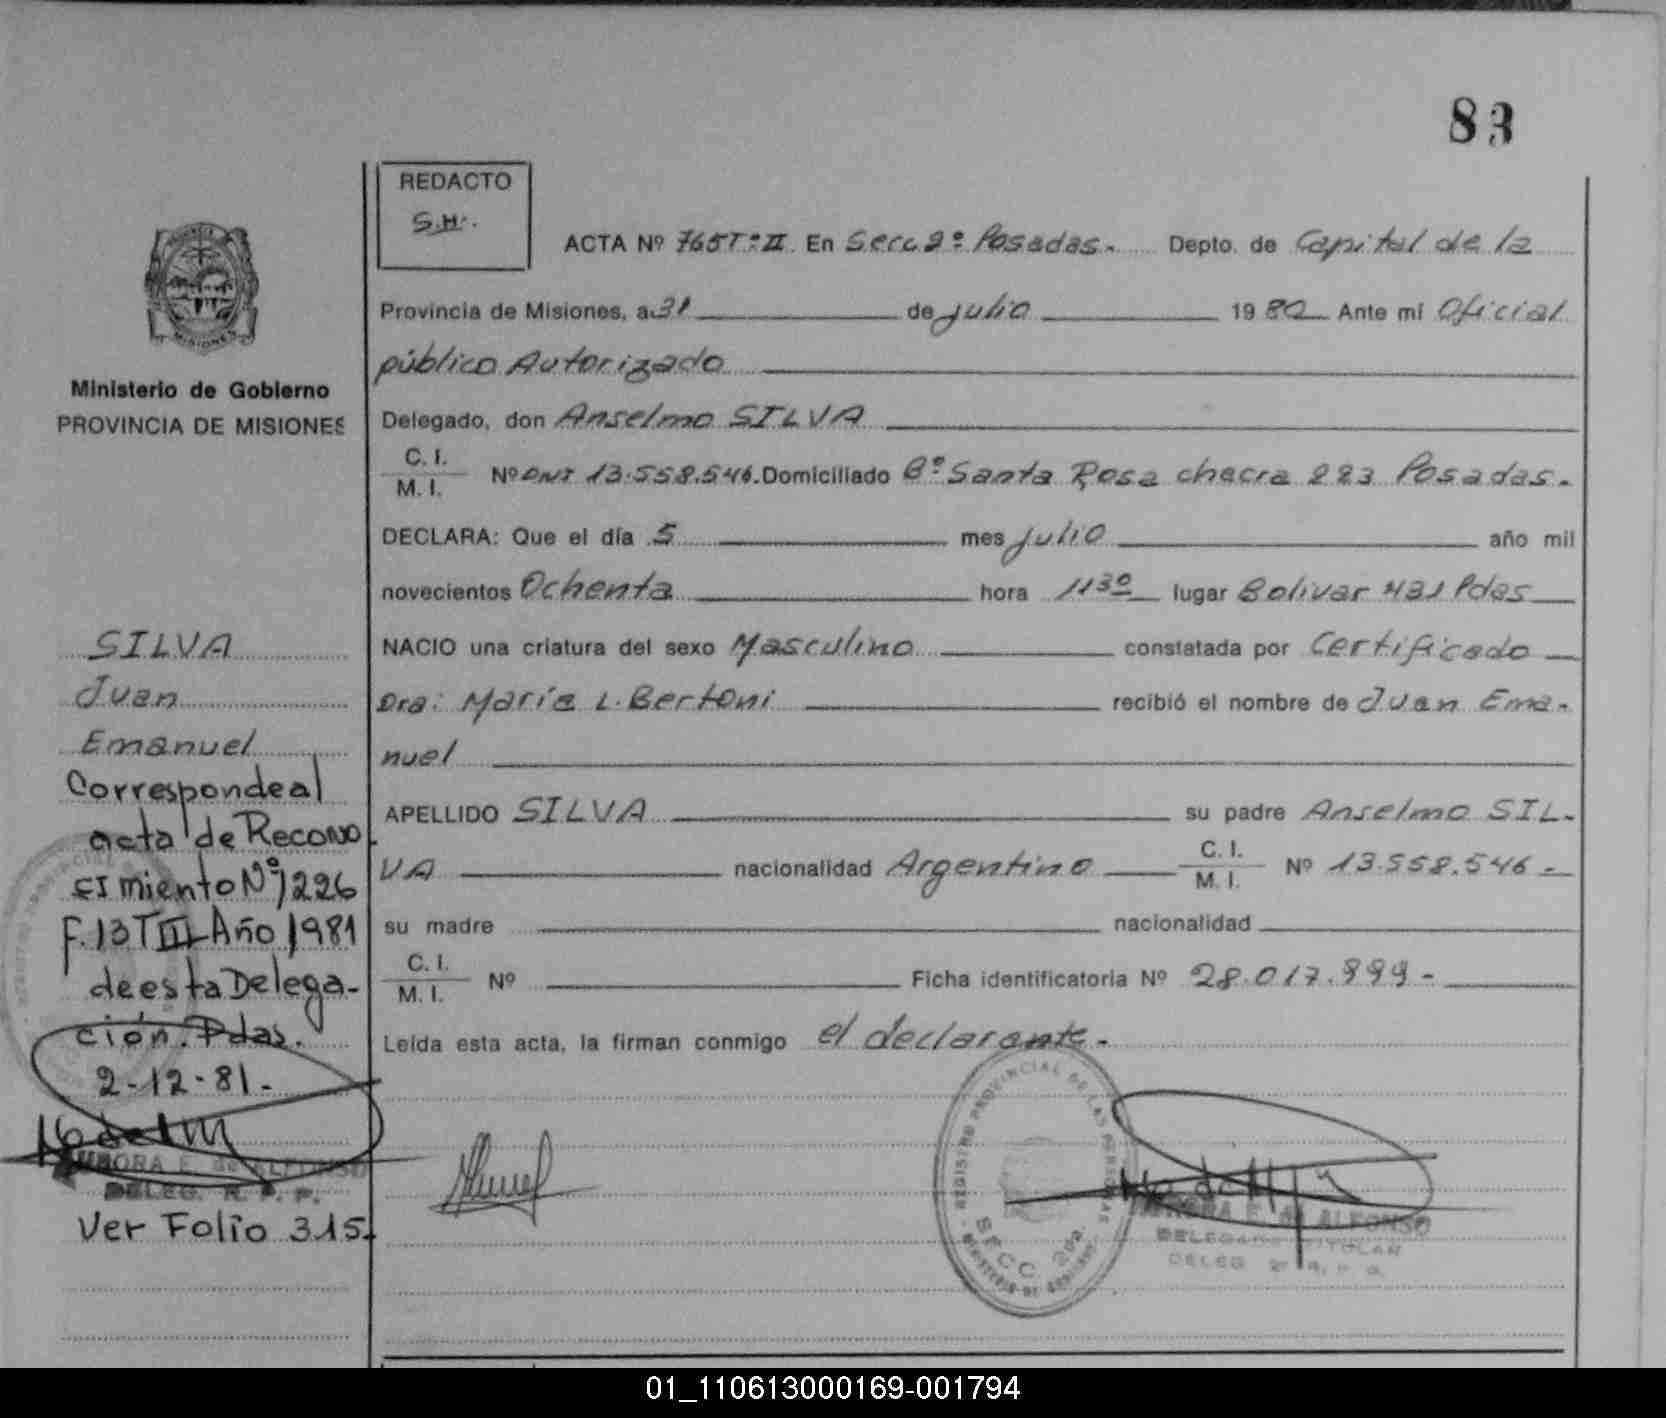 83
REDACTO
S.H.
ACTA Nº 765 Tº II En Secc. 2º Posadas.- Depto. de Capital de la
Provincia de Misiones, a 31 de julio 1980 Ante mí Oficial
público Autorizado
Delegado, don Anselmo SILVA
C. I.
M. I. Nº DNI 13.558.546. Domiciliado Bº Santa Rosa chacra 223 Posadas.-
DECLARA: Que el día 5 mes julio año mil
novecientos Ochenta hora 1130 lugar Bolivar 431 Pdas
NACIO una criatura del sexo Masculino constatada por Certificado
Dra: María L. Bertoni recibió el nombre de Juan Ema-
nuel
APELLIDO SILVA su padre Anselmo SIL-
VA nacionalidad Argentino C. I.
M. I. Nº 13.558.546.-
su madre nacionalidad
C. I.
M. I. Nº Ficha identificatoria Nº 28.017.999-
Leída esta acta, la firman conmigo el declarante.-
REGISTRO PROVINCIAL DE LAS PERSONAS
SECC. 2da.
MINISTERIO DE GOBIERNO
AURORA E. de ALFONSO
DELEGADO TITULAR
DELEG. 2º R. P. P.
MISIONES
Ministerio de Gobierno
PROVINCIA DE MISIONES
SILVA
Juan
Emanuel
Corresponde al
acta de Recono
cimiento Nº 1226
F. 13 T III Año 1981
de esta Delega-
ción. Pdas.
2-12-81.-
AURORA E. de ALFONSO
DELEG. R. P. P.
Ver Folio 315.
01_110613000169-001794